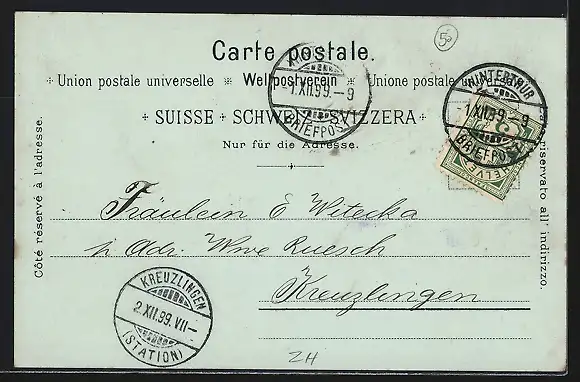 50
Carte Postale.
Union postale universelle Weltpostverein Unione postale universale
SUISSE SCHWEIZ SVIZZERA
Nur für die Adresse.
Côté réservé à l'adresse.
riservato all' indirizzo.
WINTERTHUR
1.XII.99.-9
BRIEFPOST
WINTERTHUR
1.XII.99.-9
BRIEFPOST
Fräulein E Witecka
p. Adr. Wwe Ruesch
Kreuzlingen
KREUZLINGEN
2.XII.99.VII-
(STATION)
ZH